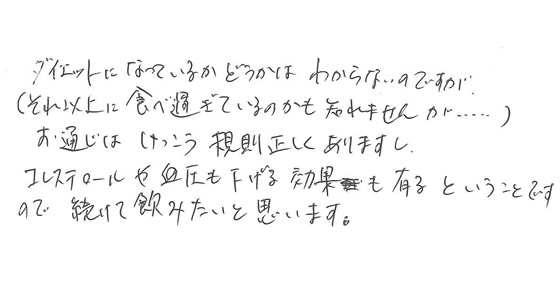 ダイエットになっているかどうかは わからないのですが、
(それ以上に食べ過ぎているのかも知れませんが……)
お通じは けっこう 規則正しくありますし、
コレステロールや血圧も下げる効果も有るということです
ので 続けて飲みたいと思います。